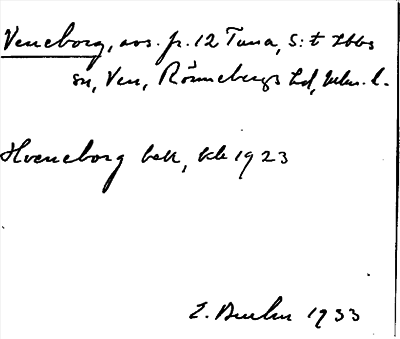 Veneborg, avs. fr. 12 Tuna, S:t Ibbs
sn, Ven, Rönnebergs hd, Mlm. l.
Hveneborg bek, kb 1923
E. 1933